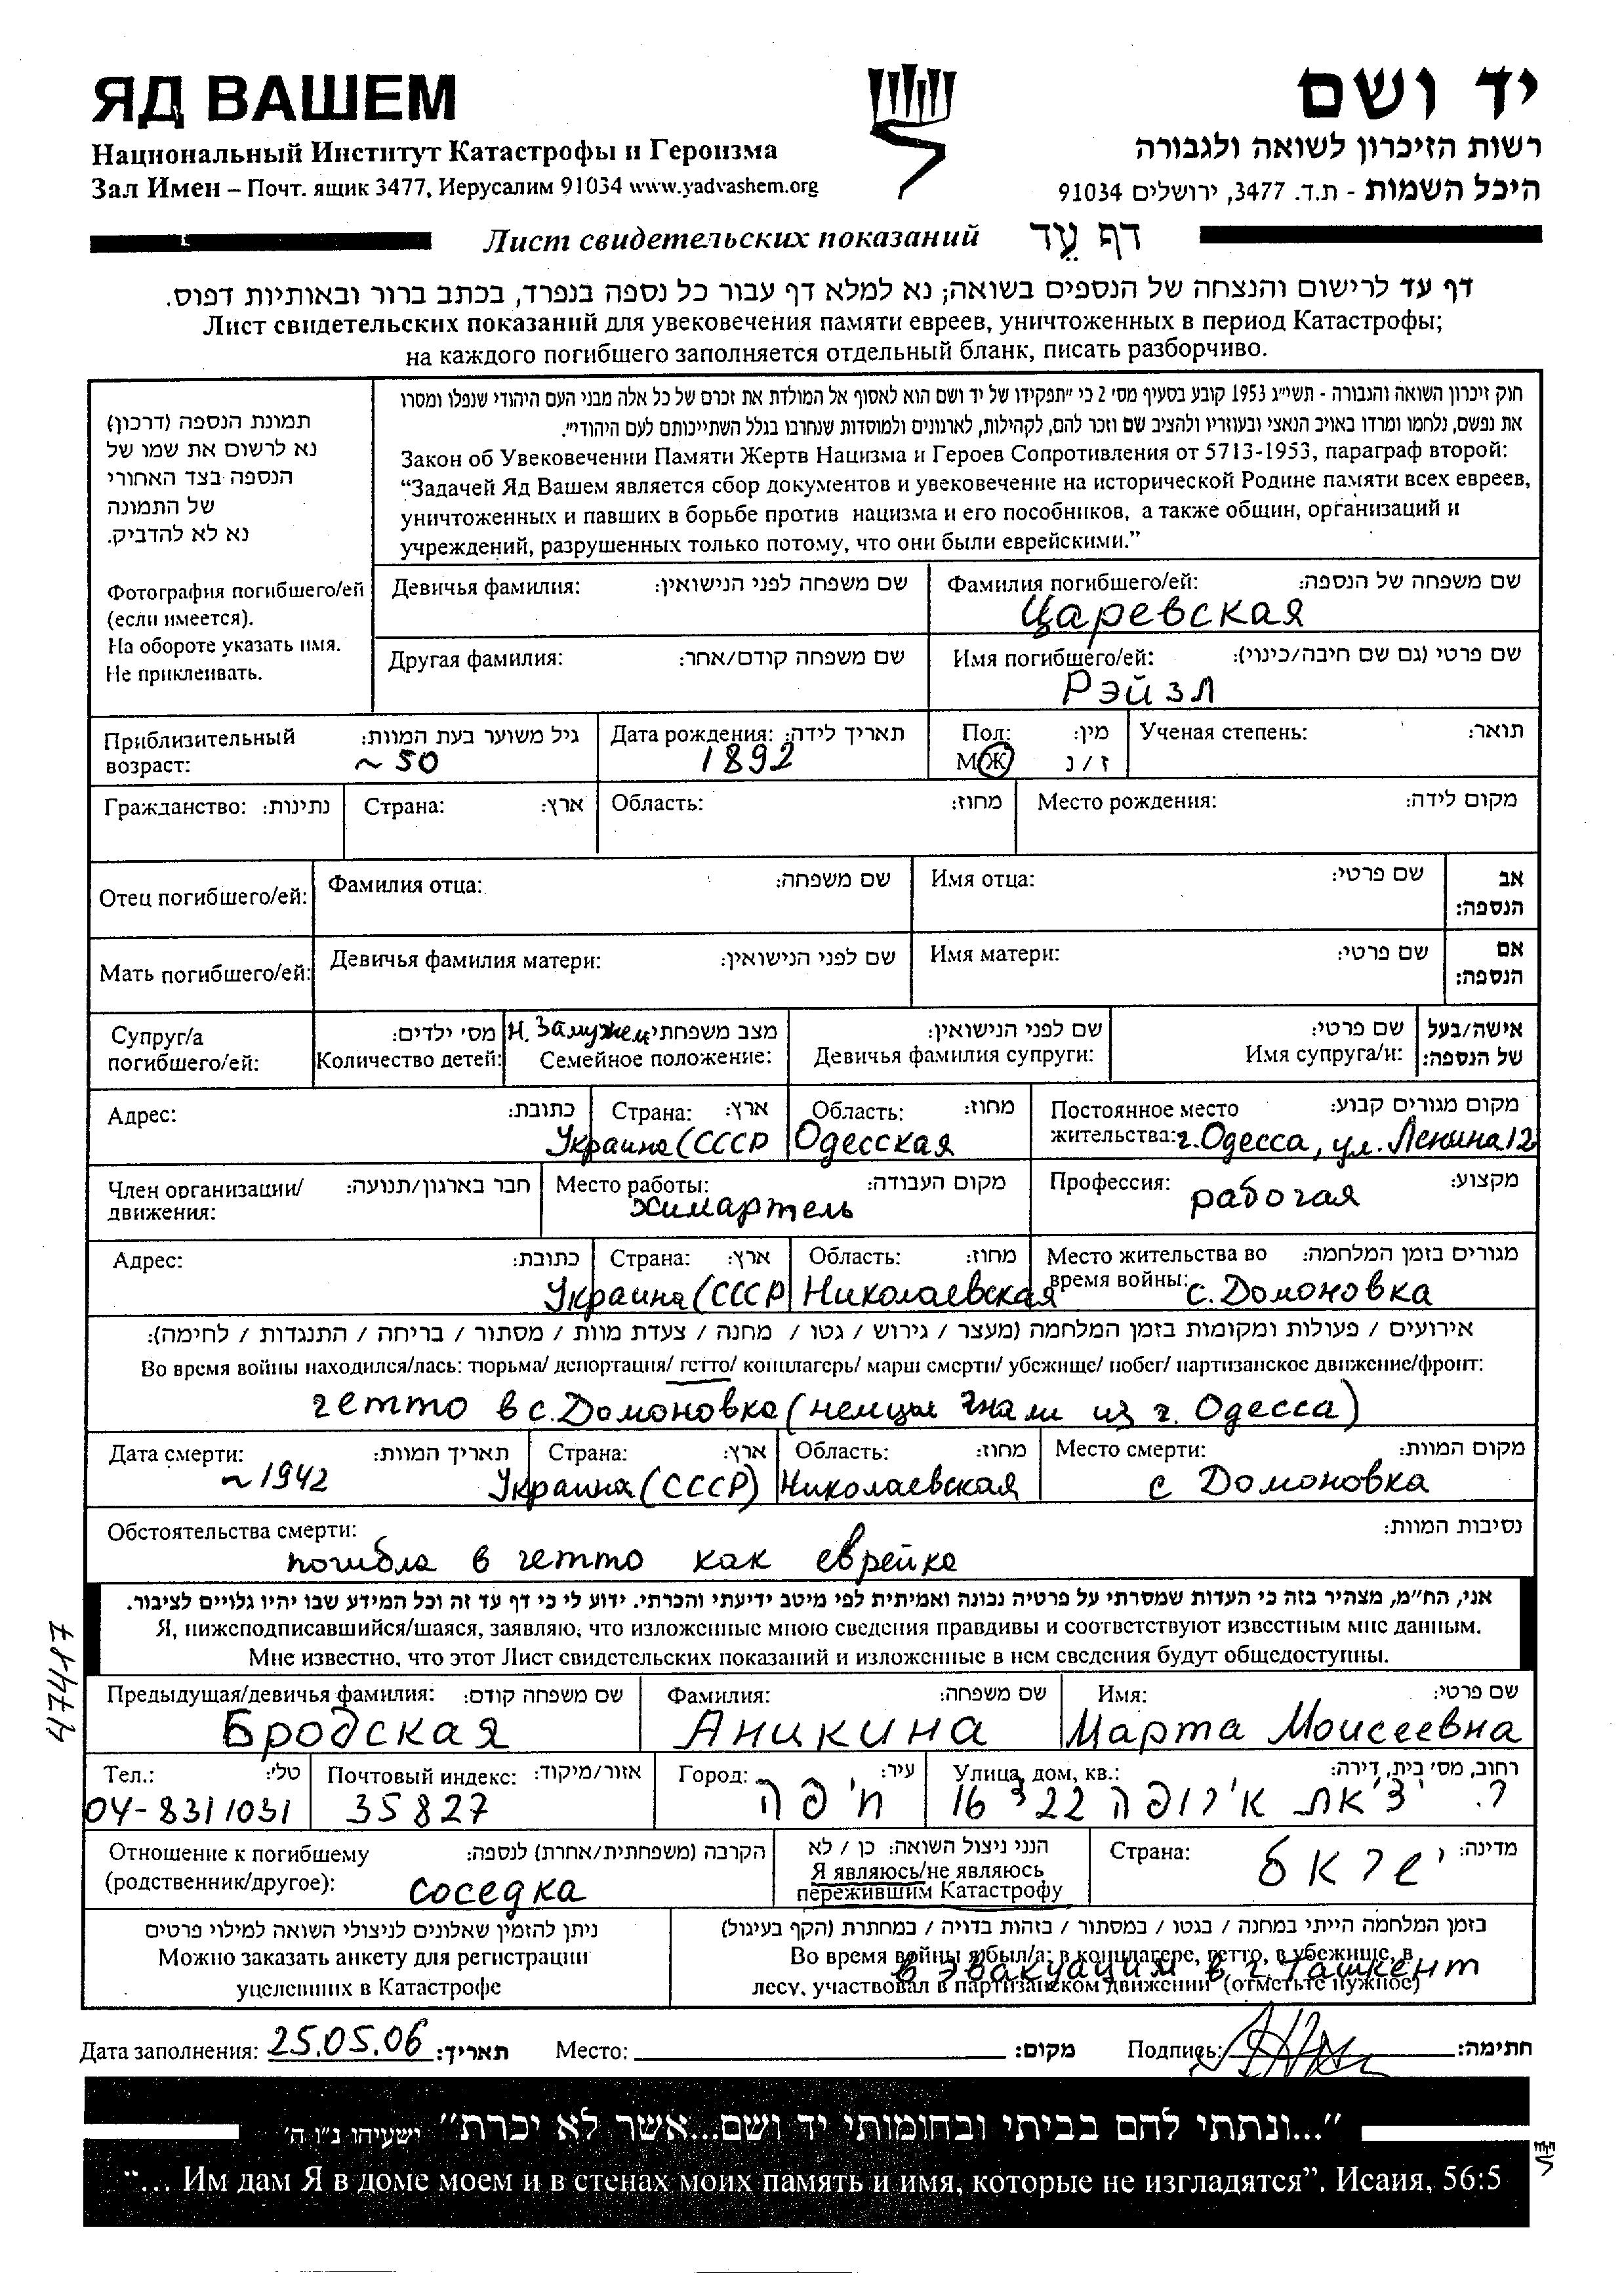 ЯД ВАШЕМ
יד ושם
Национальный Институт Катастрофы и Героизма
רשות הזיכרון לשואה ולגבורה
Зал Имен – Почт. ящик 3477, Иерусалим 91034 www.yadvashem.org
היכל השמות - ת.ד. 3477, ירושלים 91034
Лист свидетельских показаний דף עֵד
דף עד לרישום והנצחה של הנספים בשואה; נא למלא דף עבור כל נספה בנפרד, בכתב ברור ובאותיות דפוס.
Лист свидетельских показаний для увековечения памяти евреев, уничтоженных в период Катастрофы;
на каждого погибшего заполняется отдельный бланк, писать разборчиво.
תמונת הנספה (דרכון)
נא לרשום את שמו של
הנספה בצד האחורי
של התמונה
נא לא להדביק.
Фотография погибшего/ей
(если имеется).
На обороте указать имя.
Не приклеивать.
חוק זיכרון השואה והגבורה - תשי״ג 1953 קובע בסעיף מס׳ 2 כי ״תפקידו של יד ושם הוא לאסוף אל המולדת את זכרם של כל אלה מבני העם היהודי שנפלו ומסרו
את נפשם, נלחמו ומרדו באויב הנאצי ובעוזריו ולהציב שם וזכר להם, לקהילות, לארגונים ולמוסדות שנחרבו בגלל השתייכותם לעם היהודי״.
Закон об Увековечении Памяти Жертв Нацизма и Героев Сопротивления от 5713-1953, параграф второй:
“Задачей Яд Вашем является сбор документов и увековечение на исторической Родине памяти всех евреев,
уничтоженных и павших в борьбе против нацизма и его пособников, а также общин, организаций и
учреждений, разрушенных только потому, что они были еврейскими.”
Девичья фамилия: שם משפחה לפני הנישואין:
Фамилия погибшего/ей: שם משפחה של הנספה:
Царевская
Другая фамилия: שם משפחה קודם/אחר:
Имя погибшего/ей: שם פרטי (גם שם חיבה/כינוי):
Рэйзл
Приблизительный возраст: גיל משוער בעת המוות:
~ 50
Дата рождения: תאריך לידה:
1892
Пол: מין:
М Ж ז / נ
Ученая степень: תואר:
Гражданство: נתינות:
Страна: ארץ:
Область: מחוז:
Место рождения: מקום לידה:
Отец погибшего/ей:
Фамилия отца: שם משפחה:
Имя отца: שם פרטי:
אב
הנספה:
Мать погибшего/ей:
Девичья фамилия матери: שם לפני הנישואין:
Имя матери: שם פרטי:
אם
הנספה:
Супруг/а
погибшего/ей:
מס׳ ילדים:
Количество детей:
Н. Замужем מצב משפחתי
Семейное положение:
שם לפני הנישואין:
Девичья фамилия супруги:
שם פרטי:
Имя супруга/и:
אישה/בעל
של הנספה:
Адрес: כתובת:
Страна: ארץ:
Украина (СССР
Область: מחוז:
Одесская
Постоянное место מקום מגורים קבוע:
жительства: г. Одесса, ул. Ленина 12
Член организации/ חבר בארגון/תנועה:
движения:
Место работы: מקום העבודה:
химартель
Профессия: מקצוע:
рабочая
Адрес: כתובת:
Страна: ארץ:
Украина (СССР
Область: מחוז:
Николаевская
Место жительства во מגורים בזמן המלחמה:
время войны: с. Домоновка
אירועים / פעולות ומקומות בזמן המלחמה (מעצר / גירוש / גטו / מחנה / צעדת מוות / מסתור / בריחה / התנגדות / לחימה):
Во время войны находился/лась: тюрьма/ депортация/ гетто/ концлагерь/ марш смерти/ убежище/ побег/ партизанское движение/фронт:
гетто в с. Домоновка (немцы гнали из г. Одесса)
Дата смерти: תאריך המוות:
~ 1942
Страна: ארץ:
Украина (СССР)
Область: מחוז:
Николаевская
Место смерти: מקום המוות:
с Домоновка
Обстоятельства смерти: נסיבות המוות:
погибла в гетто как еврейка
אני, הח״מ, מצהיר בזה כי העדות שמסרתי על פרטיה נכונה ואמיתית לפי מיטב ידיעתי והכרתי. ידוע לי כי דף עד זה וכל המידע שבו יהיו גלויים לציבור.
Я, нижеподписавшийся/шаяся, заявляю, что изложенные мною сведения правдивы и соответствуют известным мне данным.
Мне известно, что этот Лист свидетельских показаний и изложенные в нем сведения будут общедоступны.
47417
Предыдущая/девичья фамилия: שם משפחה קודם:
Бродская
Фамилия: שם משפחה:
Аникина
Имя: שם פרטי:
Марта Моисеевна
Тел.: טל׳:
04-8311031
Почтовый индекс: אזור/מיקוד:
35827
Город: עיר:
חיפה
Улица, дом, кв.: רחוב, מס׳ בית, דירה:
ר. יציאת אירופה 22 ד 16
Отношение к погибшему הקרבה (משפחתית/אחרת) לנספה:
(родственник/другое):
соседка
הנני ניצול השואה: כן / לא
Я являюсь/не являюсь
пережившим Катастрофу
Страна: מדינה:
ישראל
ניתן להזמין שאלונים לניצולי השואה למילוי פרטים
Можно заказать анкету для регистрации
уцелевших в Катастрофе
בזמן המלחמה הייתי במחנה / בגטו / במסתור / בזהות בדויה / במחתרת (הקף בעיגול)
Во время войны я был/а: в концлагере, гетто, в убежище, в
в эвакуации в г Ташкент
лесу, участвовал в партизанском движении (отметьте нужное)
Дата заполнения: 25.05.06 תאריך:
Место: מקום:
Подпись: חתימה:
״...ונתתי להם בביתי ובחומותי יד ושם...אשר לא יכרת״ ישעיהו נ״ו ה׳
“... Им дам Я в доме моем и в стенах моих память и имя, которые не изгладятся”. Исаия, 56:5